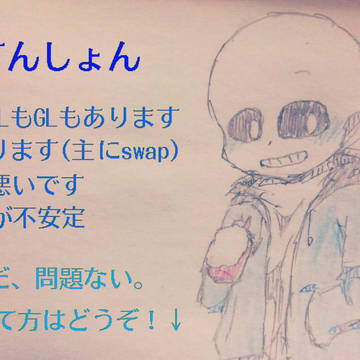 んしょん
LもGLもあります
ります(主にswap)
悪いです
が不安定
だ、問題ない。
て方はどうぞ！↓